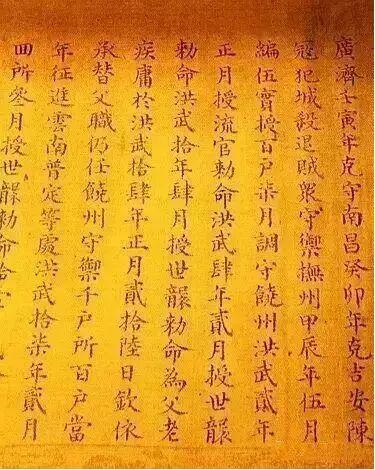 廣濟壬寅年克守南昌癸卯年克吉安陳
冦犯城殺退賊衆守禦撫州甲辰年伍月
編伍實授百戶柒月調守饒州洪武貳年
正月授流官勑命洪武肆年貳月授世襲
勑命洪武拾年肆月授世襲勑命為父老
疾庸於洪武拾肆年正月貳拾陸日欽依
承替父職仍任饒州守禦千戶所百戶當
年征進雲南普定等處洪武拾柒年貳月
囬所叅月授世襲勑命